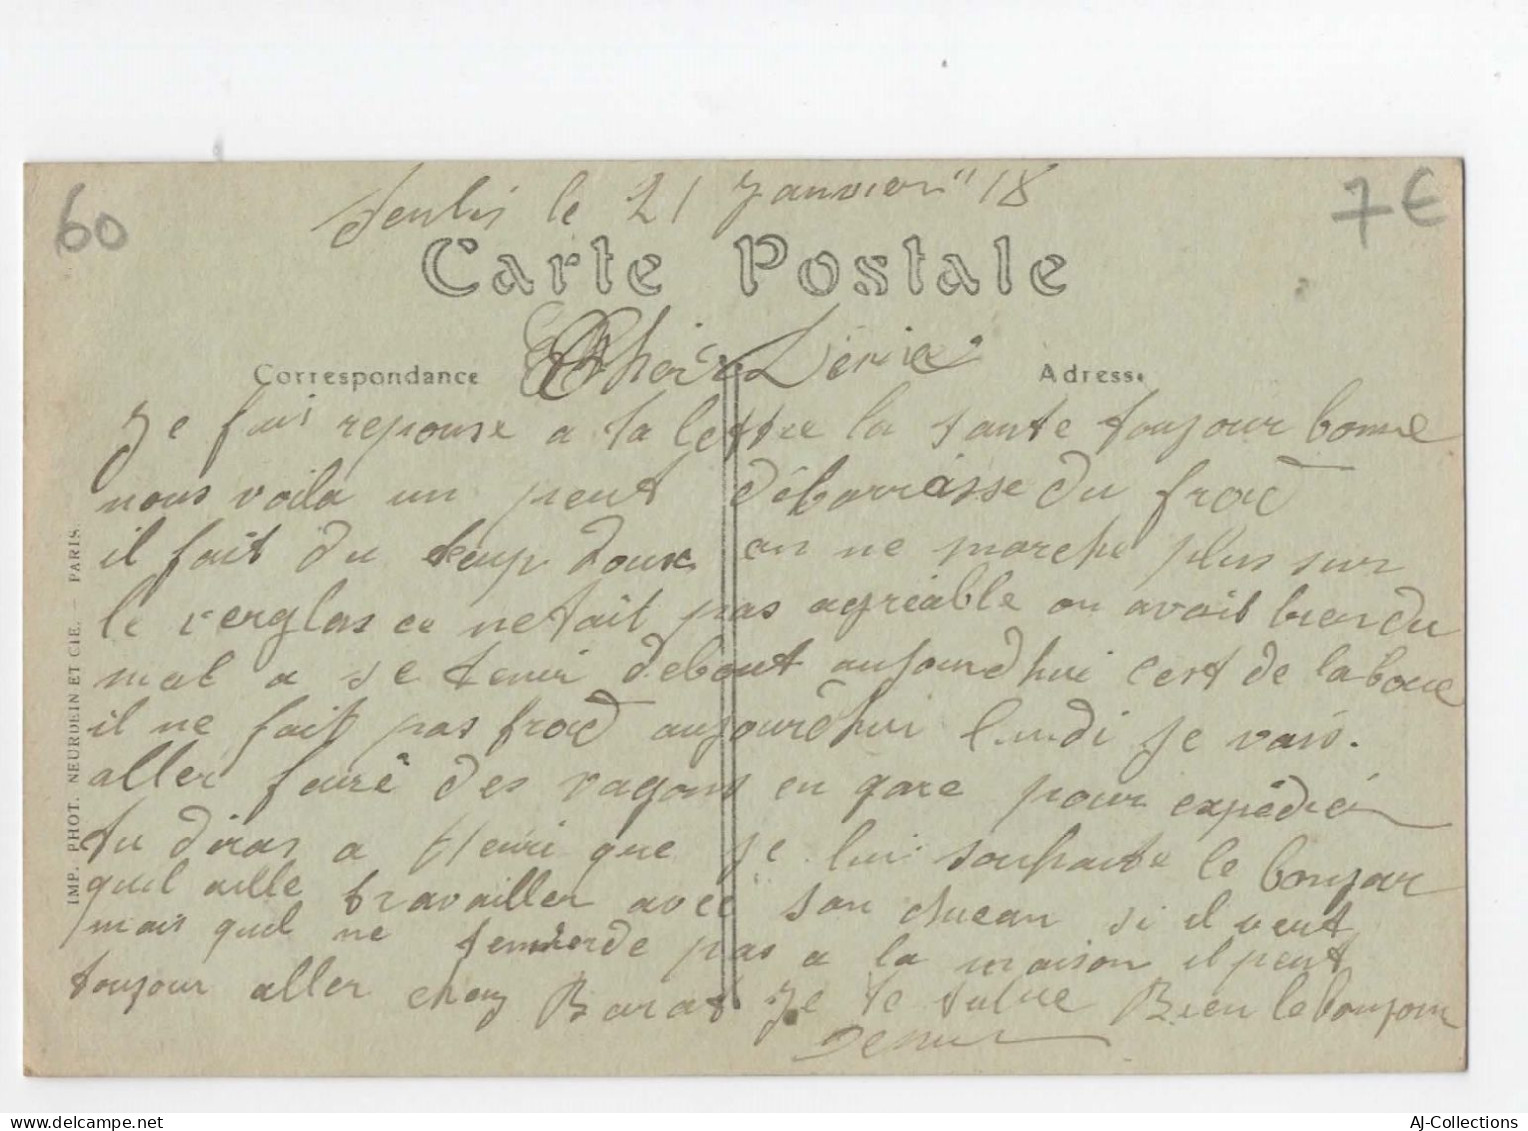 60
Senlis le 21 Janvier 18
7€
Carte Postale
Correspondance
Adresse
Je fais reponse a ta lettre la sante toujour bonne
nous voila un peut débarrasse du froid
il fait du temp doux on ne marche plus sur
le verglas ce netait pas agréable on avait bien du
mal a se tenir debout aujourdhui cest de la boue
il ne fait pas froid aujourdhui lundi je vais
aller faire des vagons en gare pour expédier
tu diras a Henri que je lui souhaite le bonjour
quil aille travailler avec son chacun si il veut
mais quil ne semmerde pas a la maison il peut
toujour aller chez Barat Je te salue Bien le bonjour
IMP. PHOT. NEURDEIN ET CIE. — PARIS.
AJ-Collections